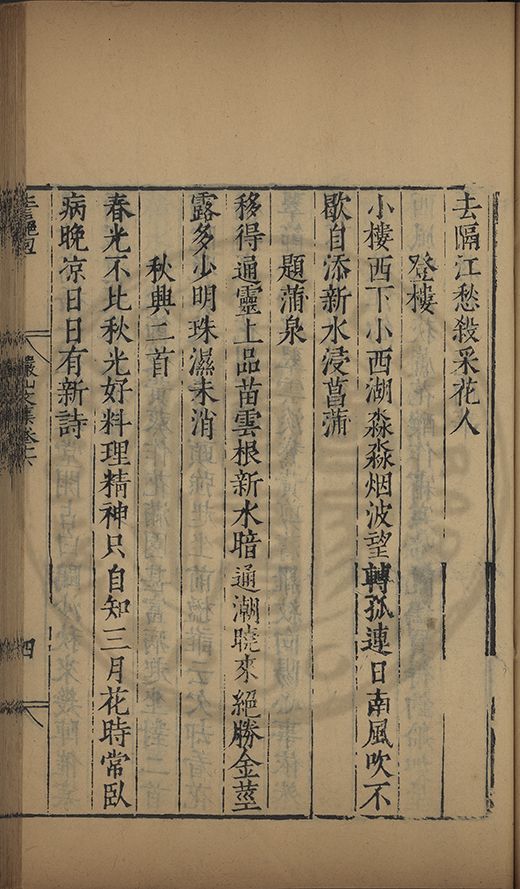 去隔江愁殺采花人
登樓
小樓西下小西湖淼淼烟波望轉孤連日南風吹不
歇自添新水浸菖蒲
題蒲泉
移得通靈上品苗雲根新水暗通潮曉來絕勝金莖
露多少明珠濕未消
秋興二首
春光不比秋光好料理精神只自知三月花時常臥
病晚凉日日有新詩
儼山文集卷
四